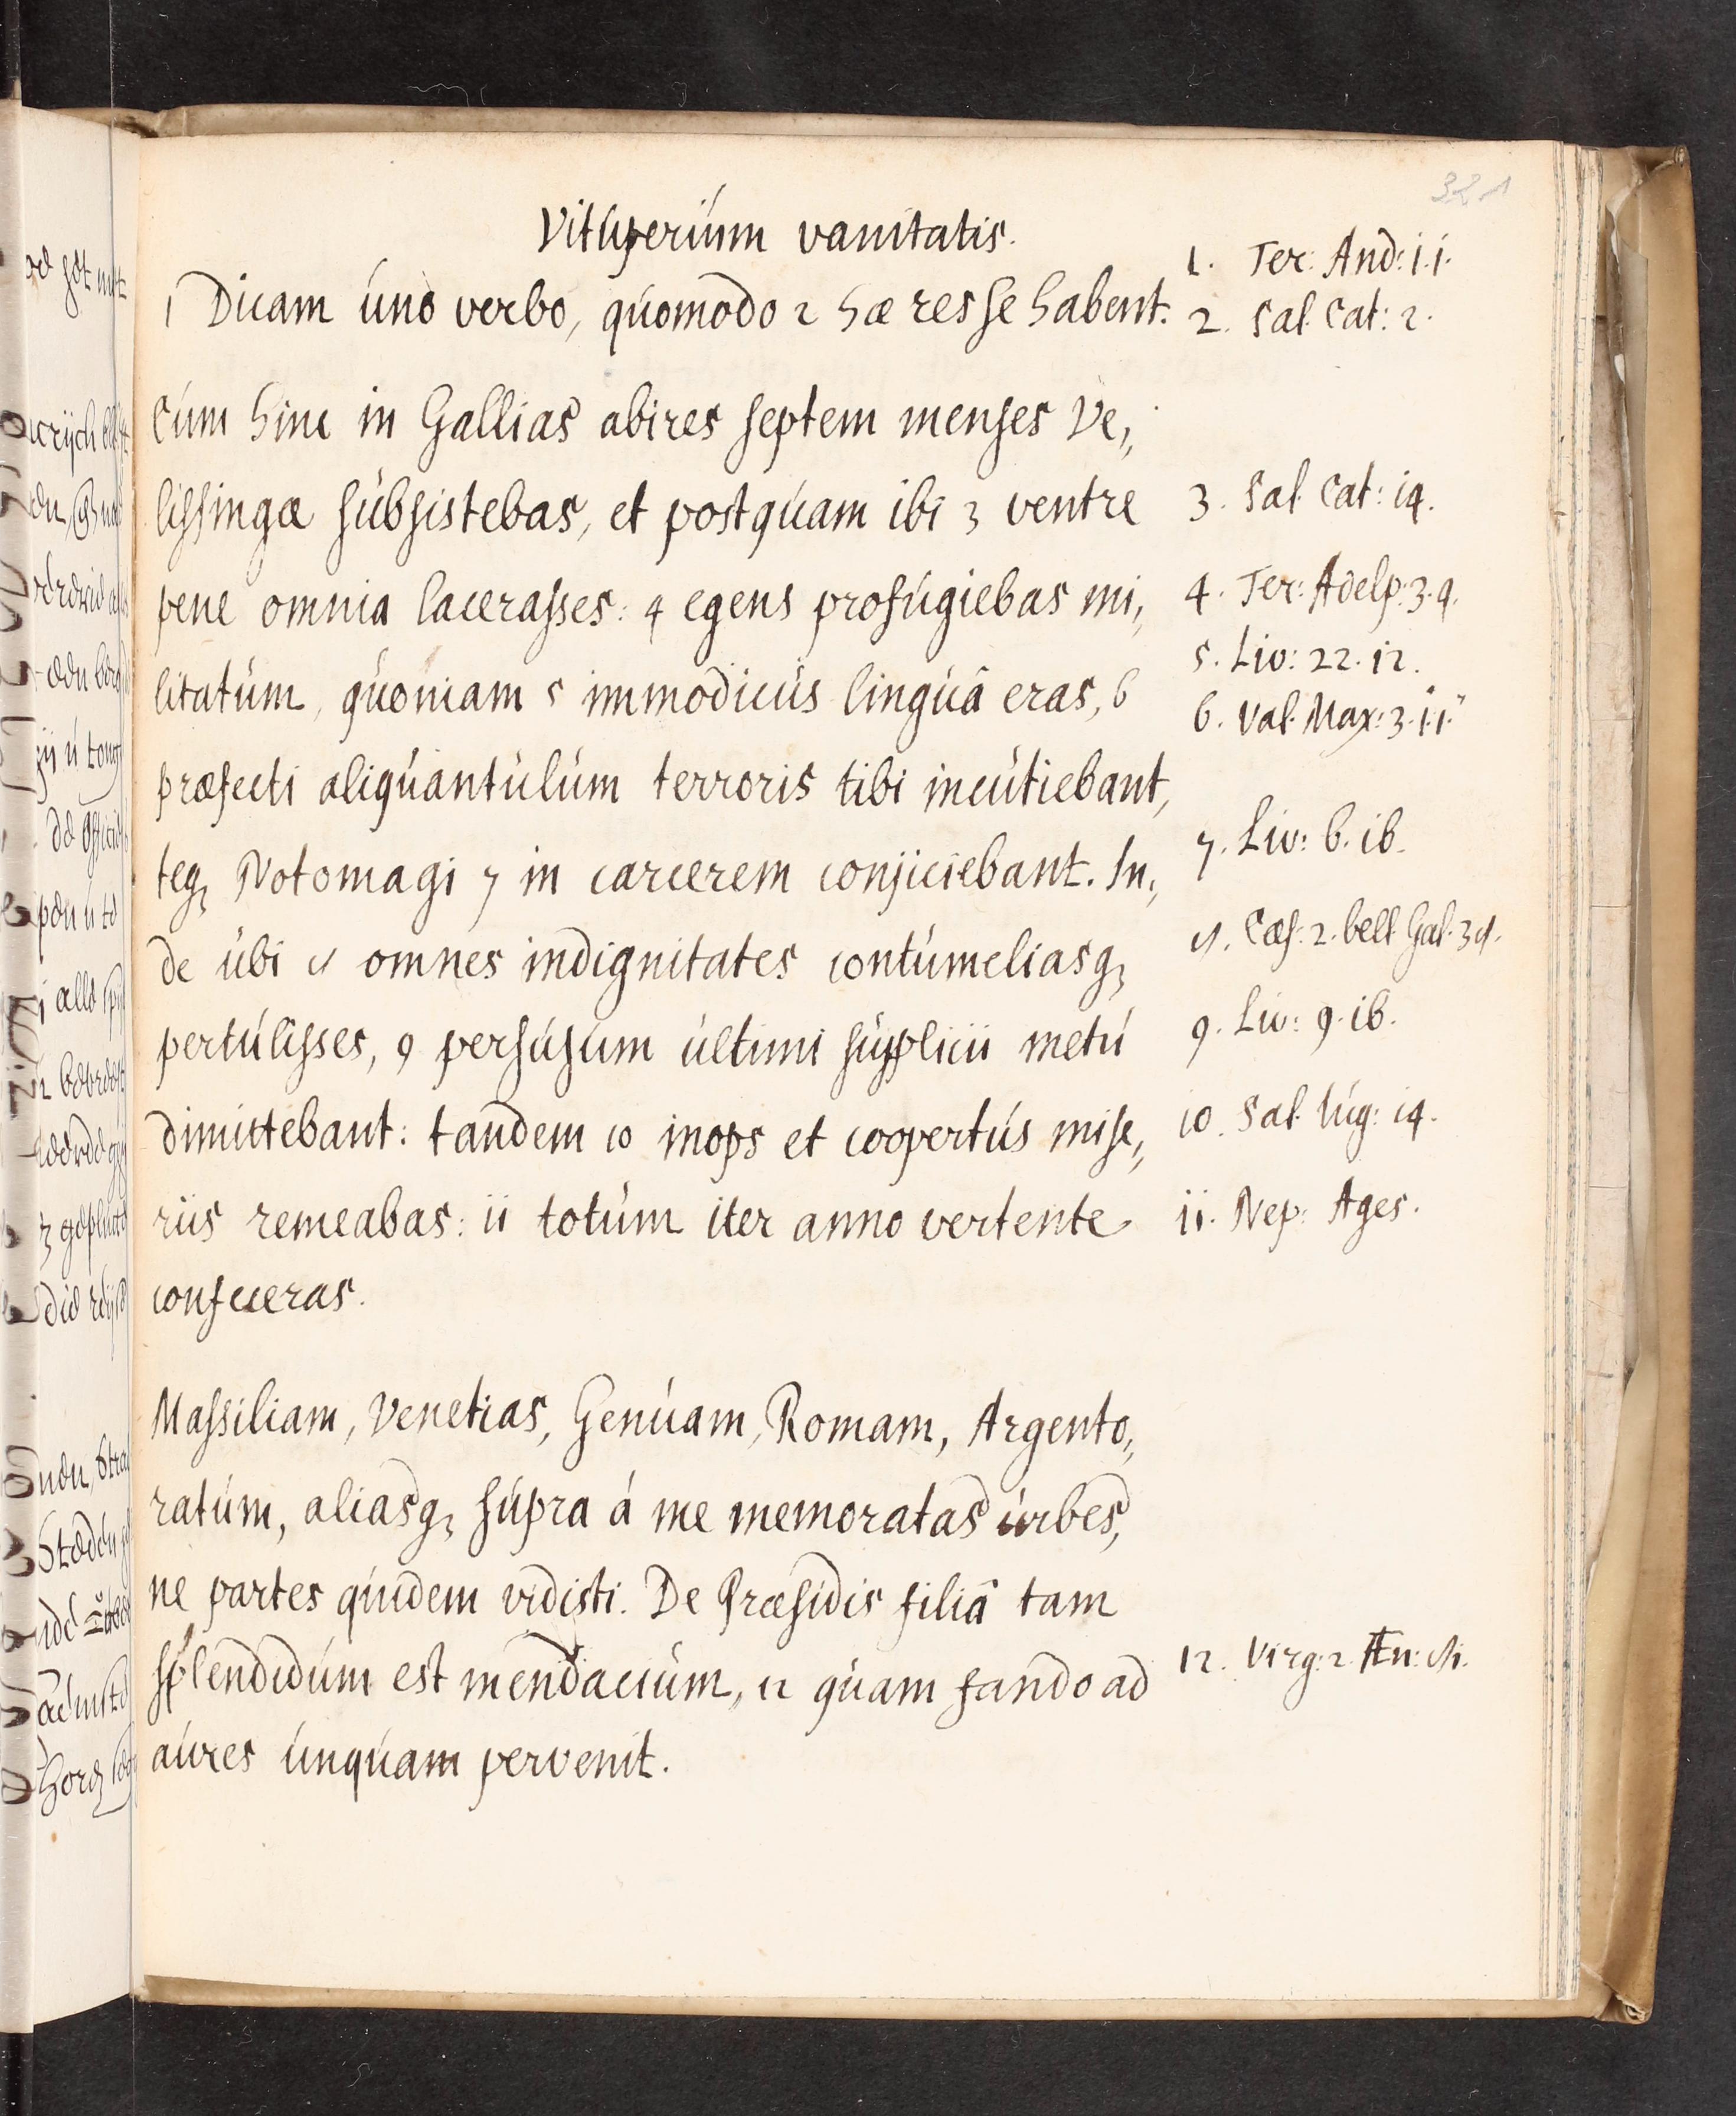 321
Vitúperiúm vanitatis.
1 Dicam úno verbo, qúomodo 2 hæ res se habent.
Cúm hinc in Gallias abires septem menses Ve,,
lissingæ súbsistebas, et postqúam ibi 3 ventre
pene omnia lacerasses: 4 egens profúgiebas mi,,
litatúm, qúoniam 5 immodicús lingúâ eras, 6
præfecti aliqúantúlúm terroris tibi incútiebant,
teq, Rotomagi 7 in carcerem conjiciebant. In,,
de úbi 8 omnes indignitates contúmeliasq,
pertúlisses, 9 perfúsúm últimi súpplicii metú
dimittebant: tandem 10 inops et coopertús mise,,
riis remeabas: 11 totúm iter anno vertente
confeceras.
Massiliam, Venetias, Genúam, Romam, Argento,,
ratúm, aliasq, súpra á me memoratas úrbes,
ne partes qúidem vidisti. De Præsidis filiâ tam
splendidúm est mendaciúm, 12 qúam fando ad
aúres únqúam pervenit.
1. Ter: And: 1.1.
2. Sal. Cat: 2.
3. Sal. Cat: 14.
4. Ter: Adelp: 3.4.
5. Liv: 22.12.
6. Val. Max: 3.1.1.
7. Liv: 6.16.
8. Cæs: 2. bell. Gal. 34.
9. Liv: 9.16.
10. Sal. Iúg: 14.
11. Nep: Ages.
12. Virg: 2. Æn: 81.